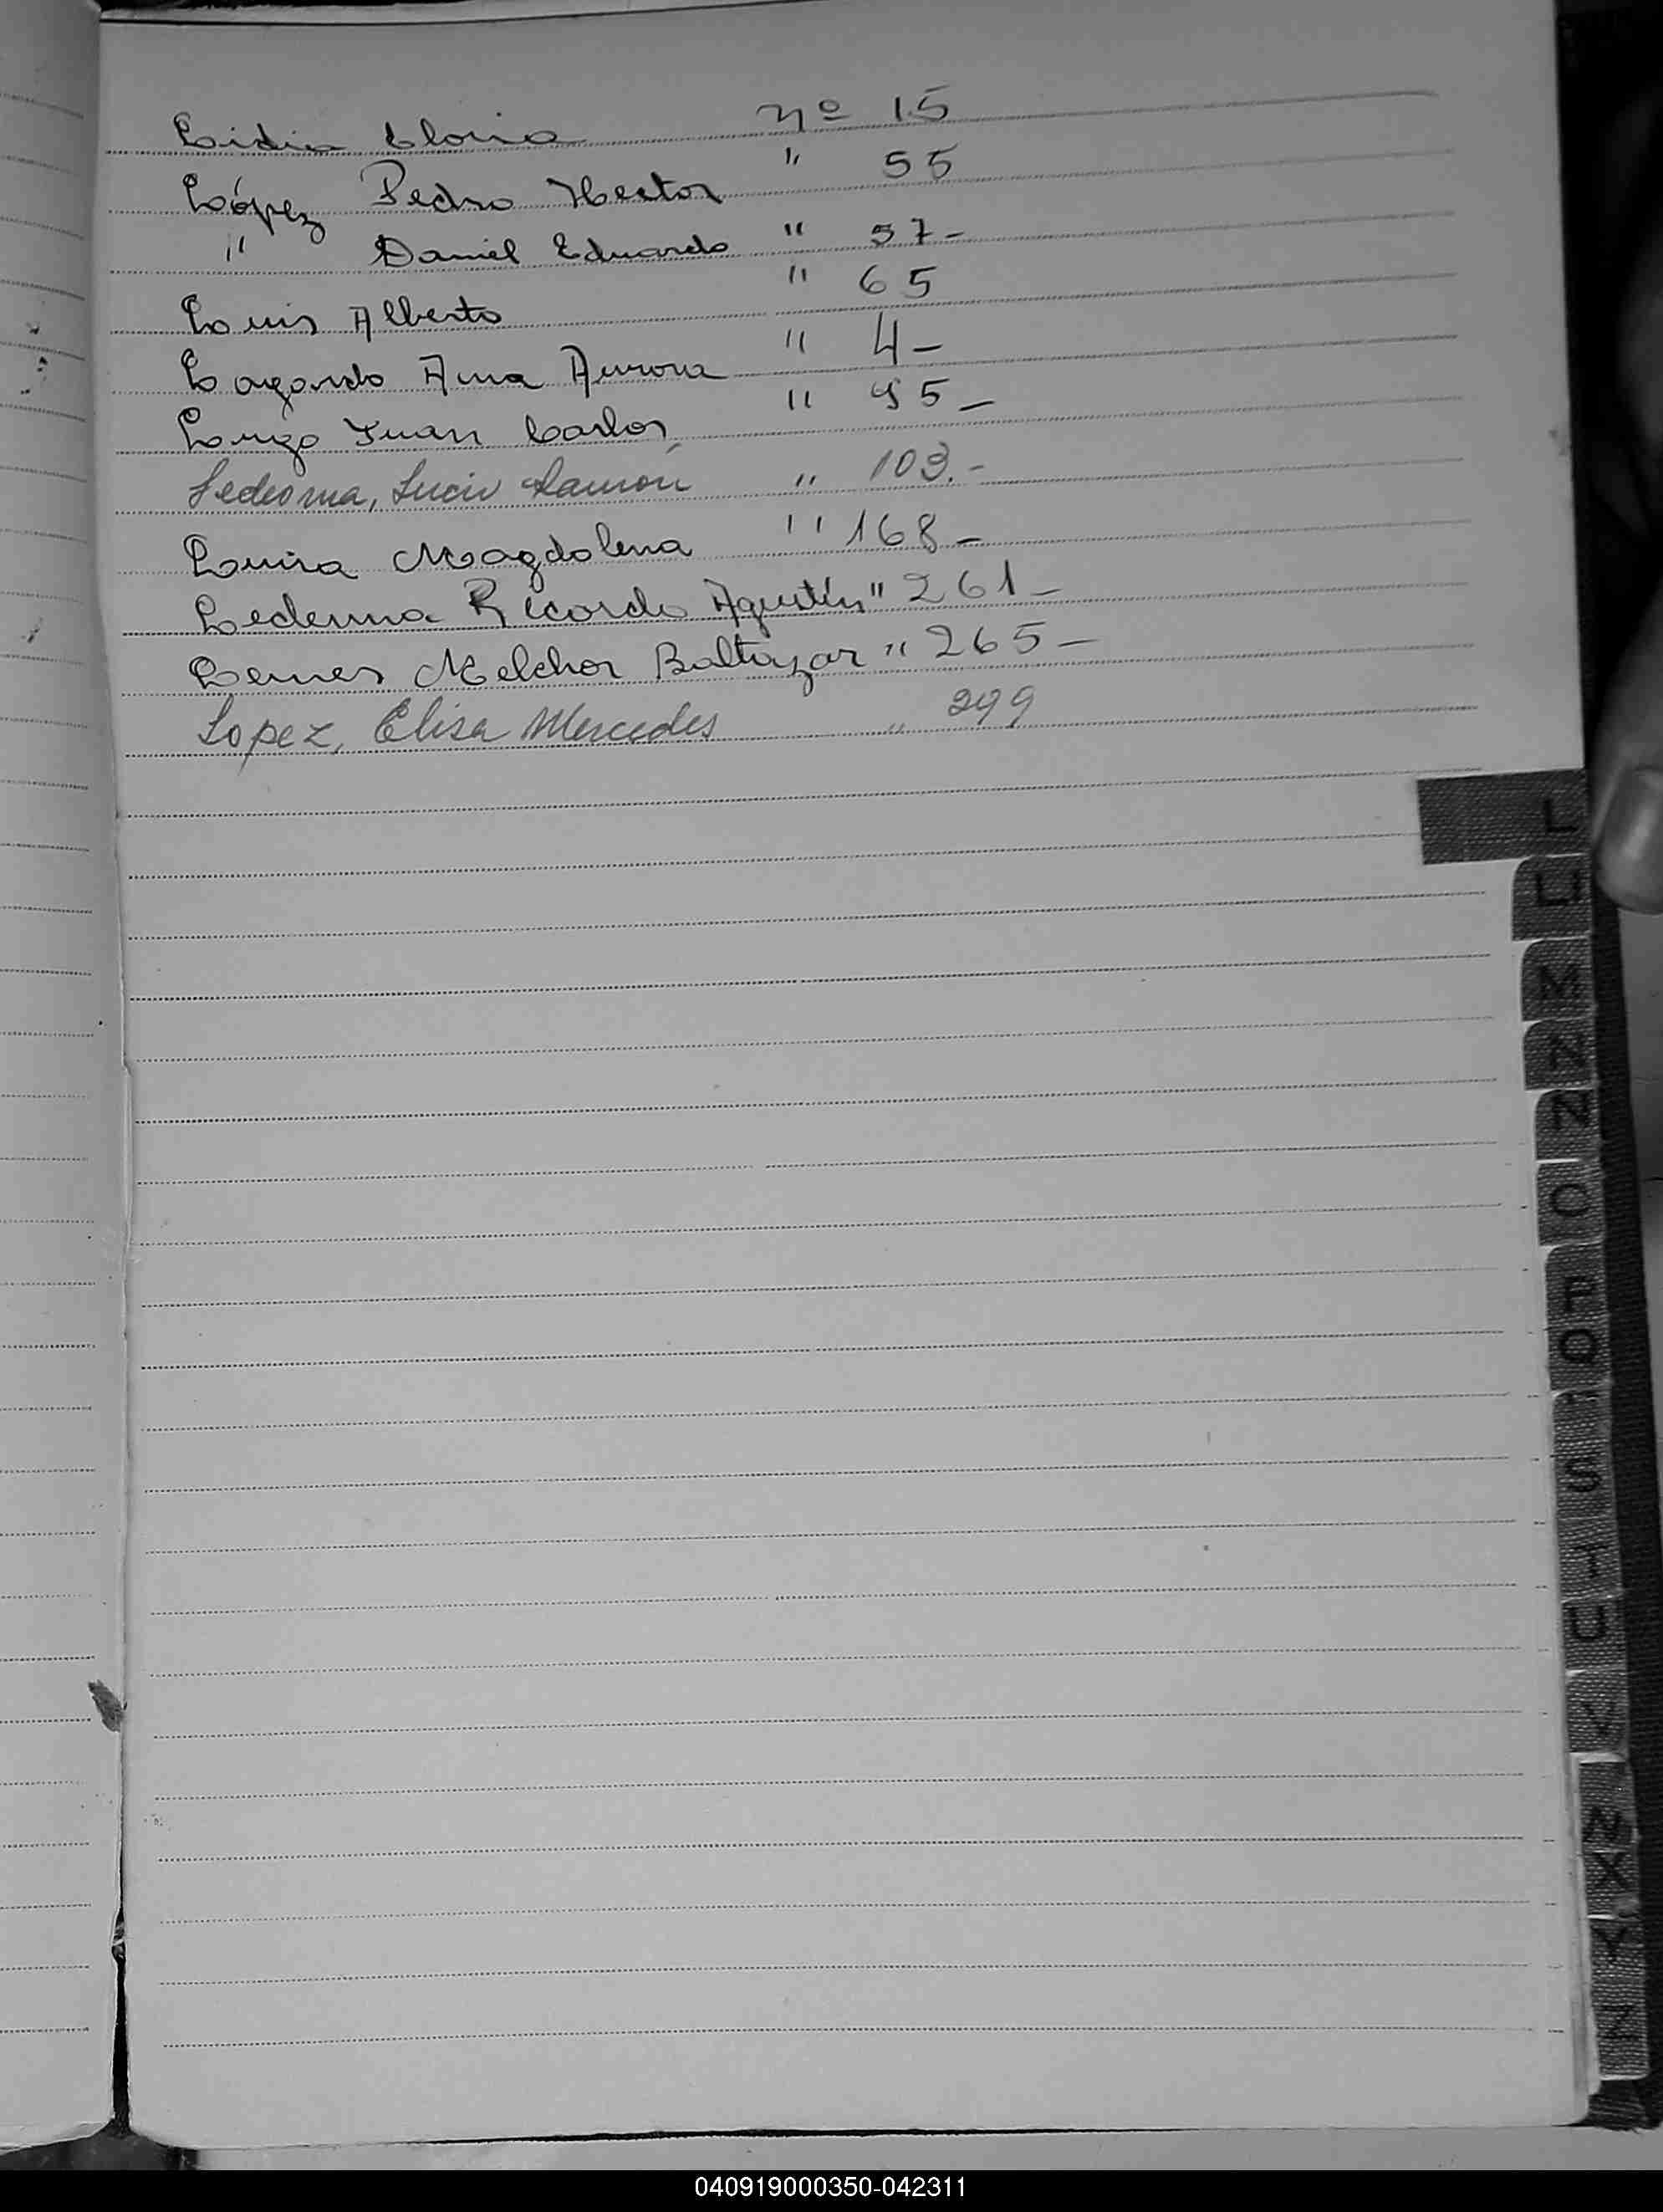 Lidia Gloria nº 15
López Pedro Hector " 55
" Daniel Eduardo " 57-
Luis Alberto " 65
Ana Aurora " 4-
Lugo Juan Carlos " 95-
Ledesma, Lucio Ramón " 103.-
Luisa Magdalena " 168-
Ledesma Ricardo Agustín " 261-
Lemes Melchor Baltazar " 265-
Lopez, Elisa Mercedes " 299
L
LL
M
N
Ñ
O
P
Q
R
S
T
U
V
W
X
Y
Z
040919000350-042311